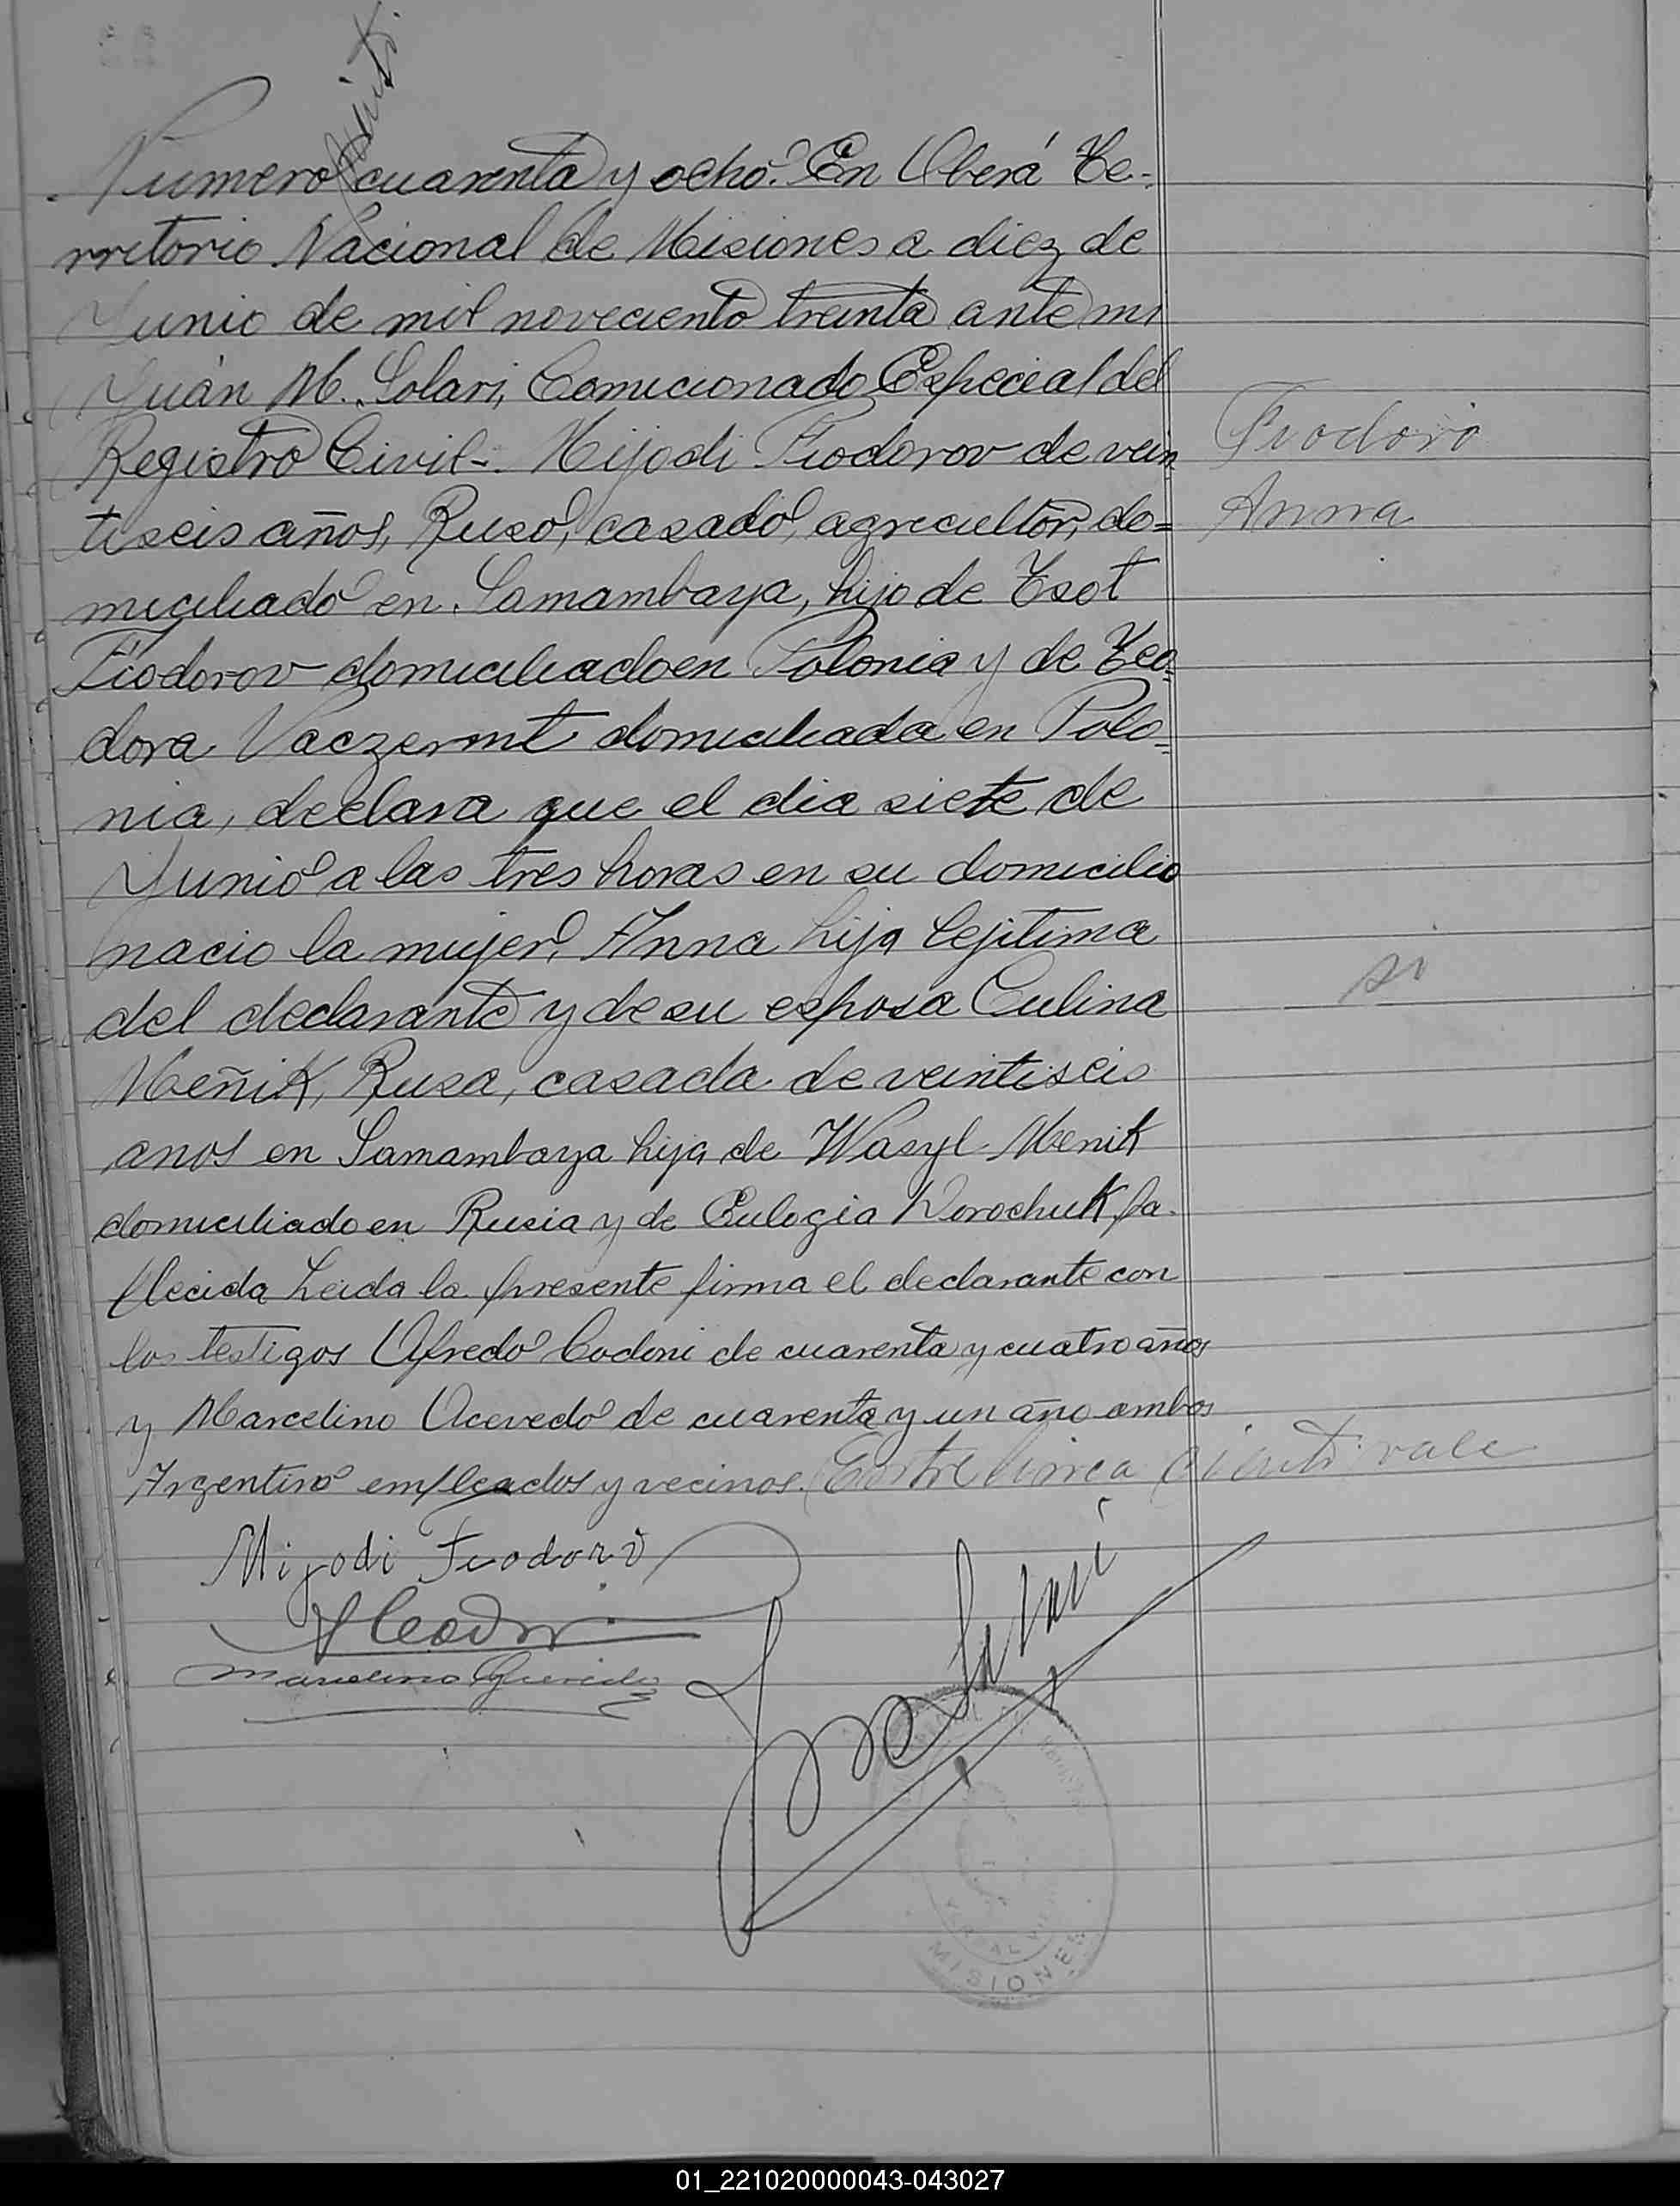 ciento
Numero cuarenta y ocho. En Oberá Te-
rritorio Nacional de Misiones a diez de
Junio de mil noveciento treinta ante mi
Juán M. Solari, Comicionado Especial del
Registro Civil-. Mijodi Fiodorov de vein
tiseis años, Ruso, casado, agricultor, do=
miciliado en Samambaya, hijo de Tsot
Fiodorov domiciliado en Polonia y de Teo=
dora Vaczermt domiciliada en Polo=
nia, declara que el dia siete de
Junio a las tres horas en su domicilio
nacio la mujer, Anna hija lejitima
del declarante y de su esposa Culina
Meñik, Rusa, casada de veintiseis
anos en Samambaya hija de Wasyl Menik
domiciliado en Rusia y de Eulogia Worochuk fa-
llecida Leida la presente firma el declarante con
los testigos Alfredo Codoni de cuarenta y cuatro años
y Marcelino Acevedo de cuarenta y un año ambos
Argentino empleados y vecinos. Entre linea ciento vale
Fiodoro
Anna
si
Mijodi Fiodorv
Solari
MISIONES
01_221020000043-043027